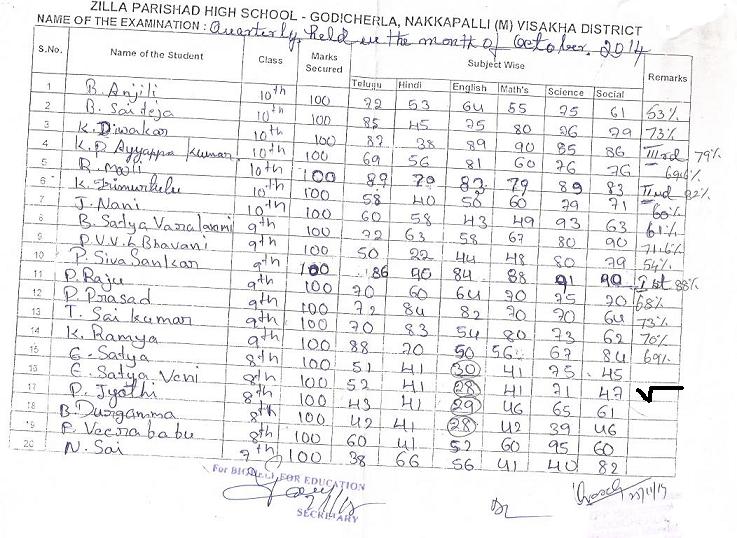 ZILLA PARISHAD HIGH SCHOOL - GODICHERLA, NAKKAPALLI (M) VISAKHA DISTRICT
NAME OF THE EXAMINATION : Quarterly, held in the month of October. 2014
S.No. Name of the Student Class Marks Secured Subject Wise Remarks
Telugu Hindi English Math's Science Social
1 B. Anjili 10th 100 22 53 64 55 75 61 53%
2 B. Saiteja 10th 100 85 45 75 80 76 79 73%
3 K. Diwakar 10th 100 87 38 89 90 85 86 IIIrd 79%
4 K.P. Ayyappa Kumar 10th 100 69 56 81 60 76 76
5 R. Mouli 10th 100 87 79 82 79 89 83 IInd 82%
6 K. 10th 100 58 40 50 60 79 71 60%
7 J. Nani 10th 100 60 58 43 49 93 63 61%
8 B. Satya 9th 100 72 63 58 67 80 90 71.6%
9 P.V.V.L Bhavani 9th 100 50 22 44 48 80 79 54%
10 P. Siva Sankar 9th 100 86 90 84 88 91 90 Ist 88%
11 P. Raju 9th 100 70 60 64 70 75 70 68%
12 P. Prasad 9th 100 72 84 82 70 70 64 73%
13 T. Sai Kumar 9th 100 70 83 54 80 73 62 70%
14 K. Ramya 9th 100 88 70 50 56 67 84 69%
15 G. Satya 8th 100 51 41 30 41 75 45
16 E. Satya Veni 8th 100 52 41 28 41 71 47
17 P. Jyothi 8th 100 43 41 29 46 65 61
18 B. Durgamma 8th 100 42 41 28 42 39 46
19 P. Veerababu 8th 100 60 41 52 60 95 60
20 N. Sai 7th 100 38 66 56 41 40 82
For FOR EDUCATION
SECRETARY